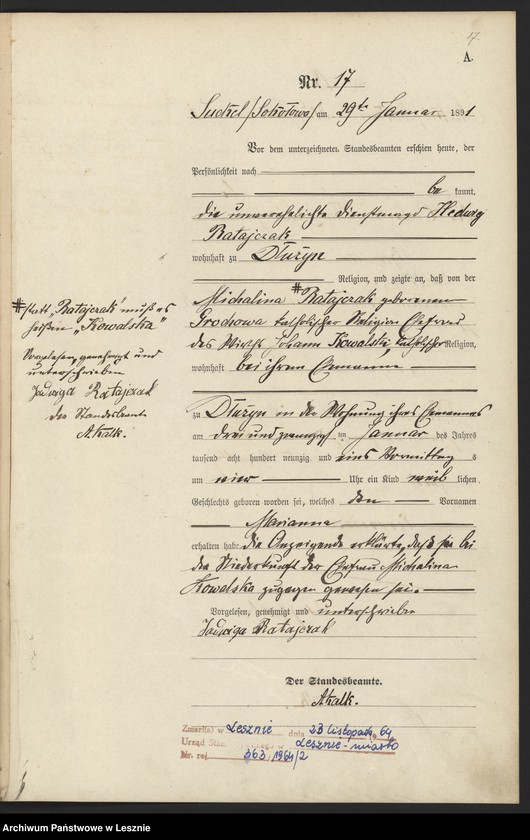 17.
A.
Nr. 17
Suckel /Sokołowo/ am 29ten Januar 1891
Vor dem unterzeichneten Standesbeamten erschien heute, der
Persönlichkeit nach
be kannt,
die unverehelichte Dienstmagd Hedwig
Ratajczak
wohnhaft zu Dłużyn
Religion, und zeigte an, daß von der
Michalina # Ratajczak geborenen
Grochowa katholischer Religion Ehefrau
des Wirths Johann Kowalski, katholischer Religion,
wohnhaft bei ihrem Ehemanne
zu Dłużyn in der Wohnung ihres Ehemannes
am drei und zwanzigsten Januar des Jahres
tausend acht hundert neunzig und eins Vormittag s
um vier Uhr ein Kind weib lichen
Geschlechts geboren worden sei, welches den Vornamen
Marianna
erhalten habe. die Anzeigende erklärte, daß sie bei
der Niederkunft der Ehefrau Michalina
Kowalska zugegen gewesen sei.
Vorgelesen, genehmigt und unterschrieben
Jadwiga Ratajczak
Der Standesbeamte.
AKalk.
# statt "Ratajczak" muß es
heißen "Kowalska"
Vorgelesen, genehmigt und
unterschrieben
Jadwiga Ratajczak
der Standesbeamte
AKalk.
Zmarł(a) w Lesznie dnia 23 listopada 64
Urząd Stanu Lesznie-miasto
Nr. rej. 363/1964/2
Archiwum Państwowe w Lesznie